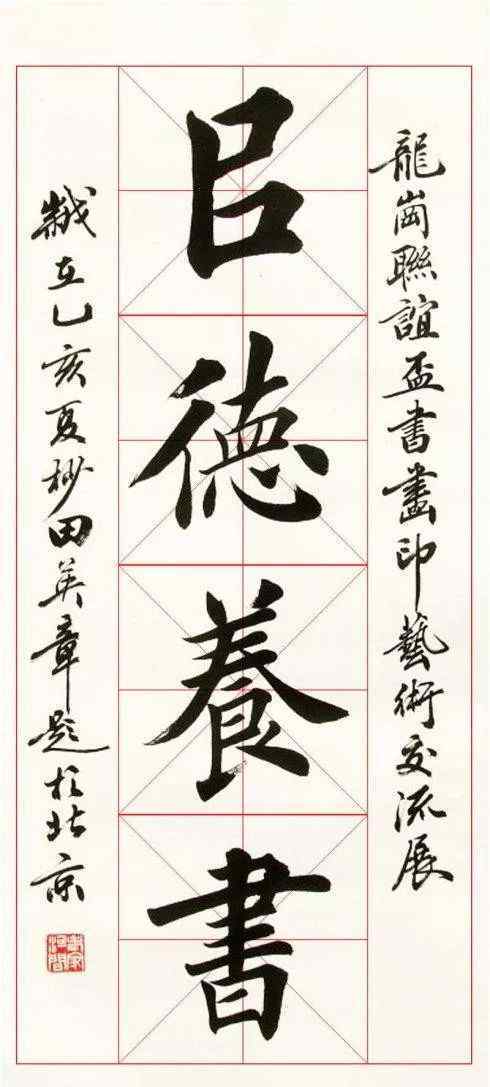 龍崗聯誼盃書畫印藝術交流展
㠯德養書
歲在乙亥夏杪田英章題於北京